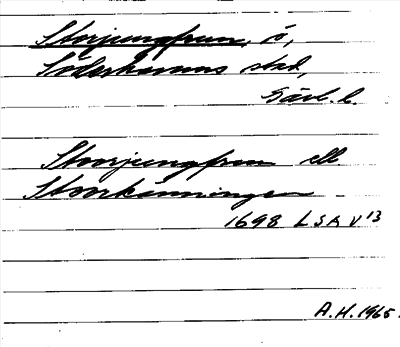 Storjungfrun, ö,
Söderhamns stad,
Gävl. l.
Storjungfrun ell.
Storrkänningen
1698 LSA V 13
A.H. 1965.